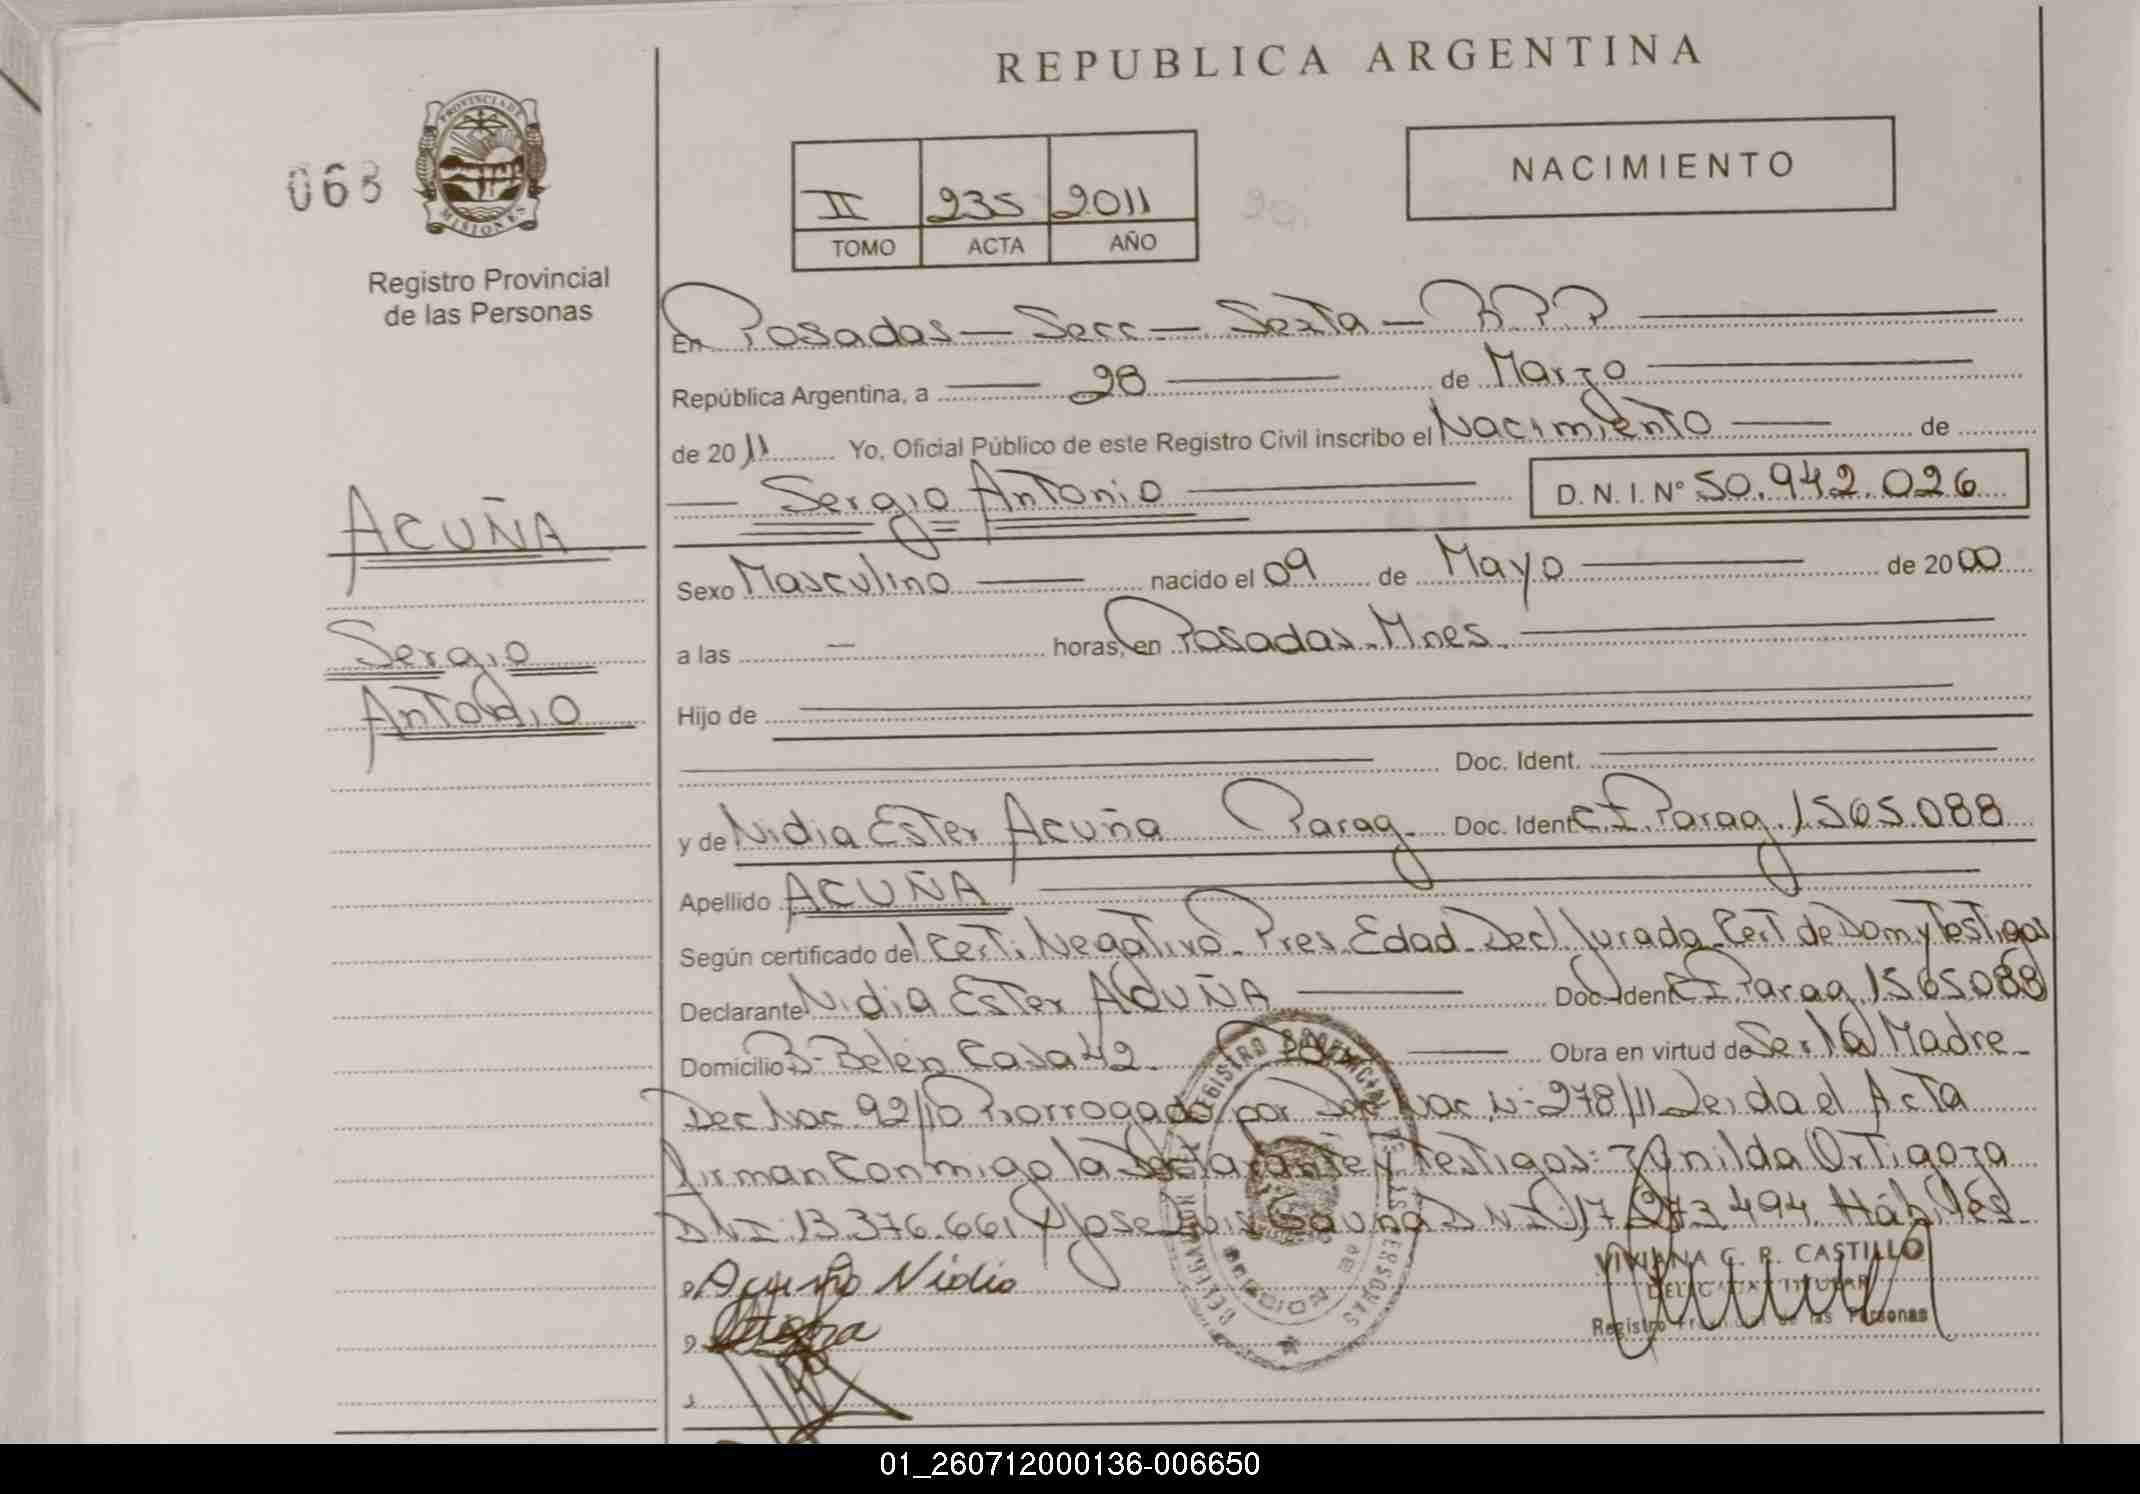 REPUBLICA ARGENTINA
063
PROVINCIA DE
MISIONES
Registro Provincial
de las Personas
II 235 2011
TOMO ACTA AÑO
NACIMIENTO
En Posadas - Secc - Sexta - RPP
República Argentina, a 28 de Marzo
de 2011 Yo, Oficial Público de este Registro Civil inscribo el Nacimiento de
Sergio Antonio D. N. I. N° 50.942.026
ACUÑA
Sergio
Antonio
Sexo Masculino nacido el 09 de Mayo de 2000
a las - horas, en Posadas. Mnes.
Hijo de
Doc. Ident.
y de Nidia Ester Acuña Parag. Doc. Ident C.I. Parag. 1565.088
Apellido ACUÑA
Según certificado del Cert. Negativo. Pres. Edad. Decl Jurada. Cert de Dom y Testigos
Declarante Nidia Ester ACUÑA Doc. Ident CI Parag. 1565088
Domicilio B- Belén Casa 42. Obra en virtud de Ser la Madre
Dec Nac. 92/10 Prorrogado por Dec Nac. N: 278/11 Leida el Acta
firman Conmigo la Declarante y Testigos: Ramilda Ortigoza
DNI: 13.376.661 y Jose Luis Gauna DNI: 17.273.494. Hábiles
Acuña Nidia
REGISTRO PROVINCIAL DE LAS PERSONAS
VIVIANA G. R. CASTILLO
DELEGADA TITULAR
Registro Provincial de las Personas
01_260712000136-006650